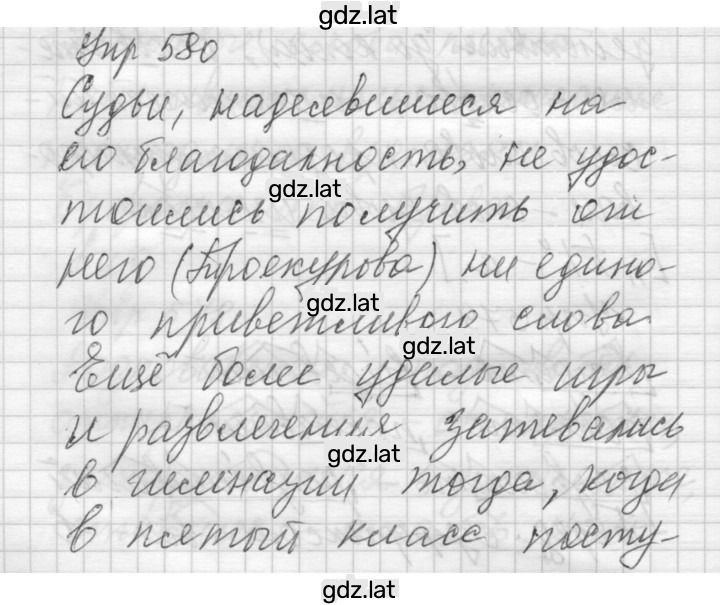 gdz.lat
Упр 580
Судьи, надеявшиеся на
его благодарность, не удос-
gdz.lat
тоились получить от
него (Троекурова) ни едино-
gdz.lat
го приветливого слова
gdz.lat
Ещё более удалые игры
и развлечения затевались
gdz.lat
в гимназии тогда, когда
в пятый класс посту-
gdz.lat